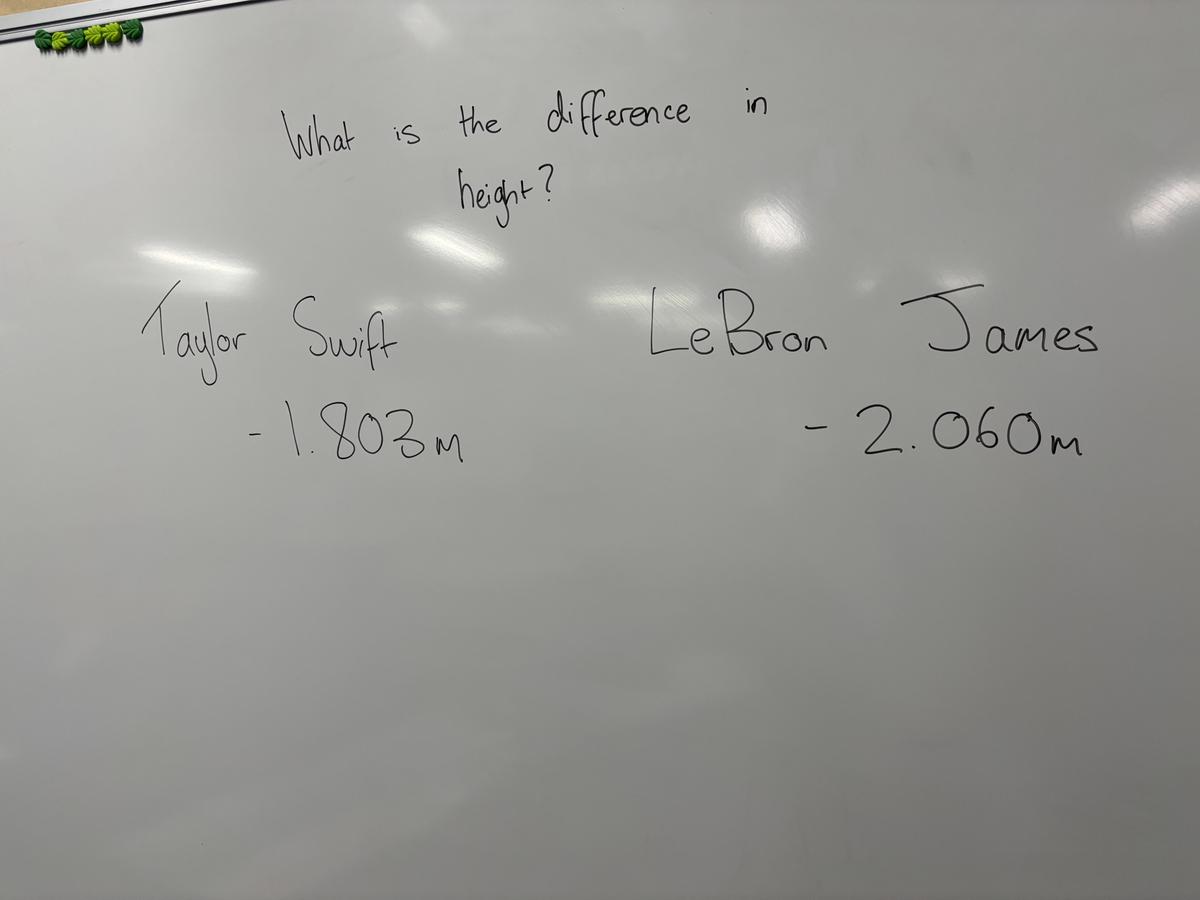 What is the difference in
height?
Taylor Swift
LeBron James
- 1.803m
- 2.060m